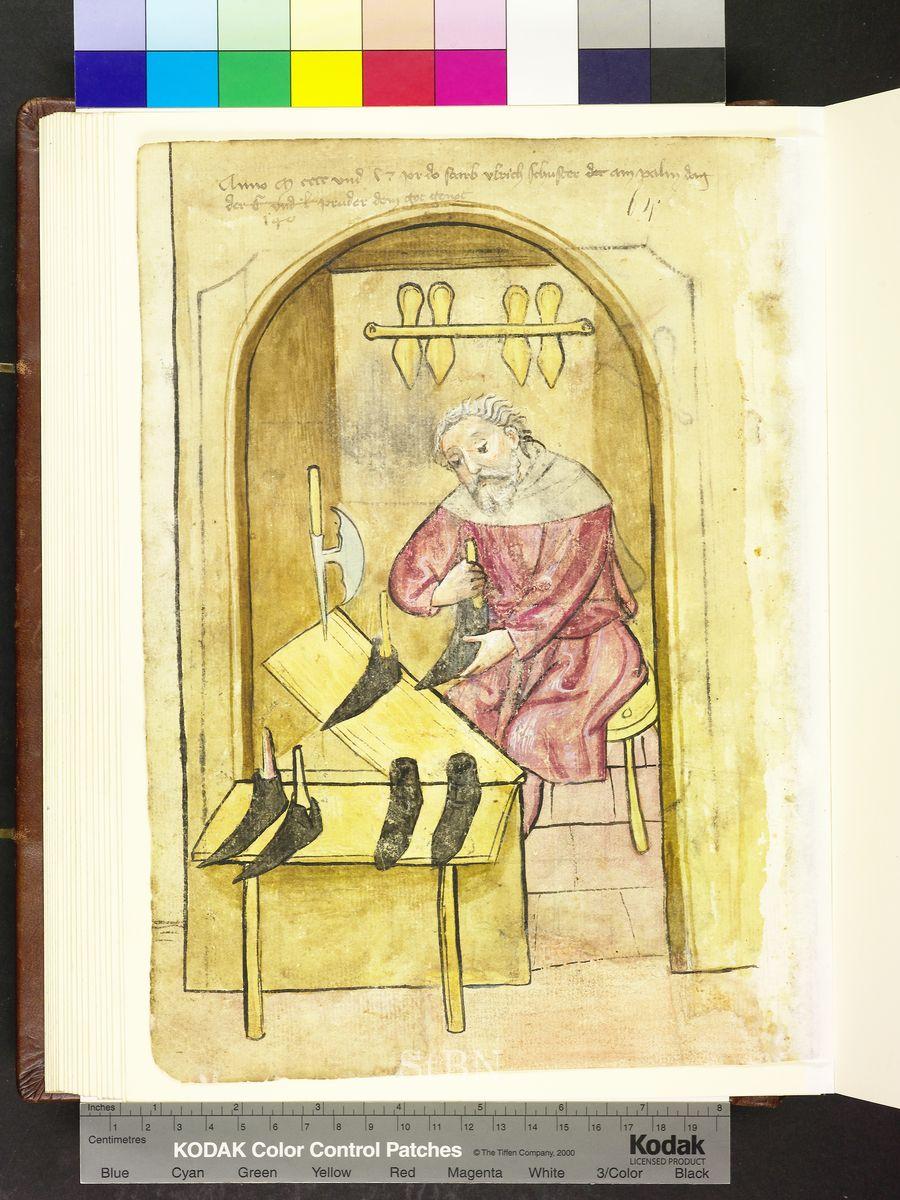 Anno m cccc und l7 jor do starb ulrich schuster der am palm dag
der und pruder dem got genot
64
StBN
Inches 1 2 3 4 5 6 7 8
1 2 3 4 5 6 7 8 9 10 11 12 13 14 15 16 17 18 19
Centimetres
KODAK Color Control Patches © The Tiffen Company, 2000 Kodak
LICENSED PRODUCT
Blue Cyan Green Yellow Red Magenta White 3/Color Black